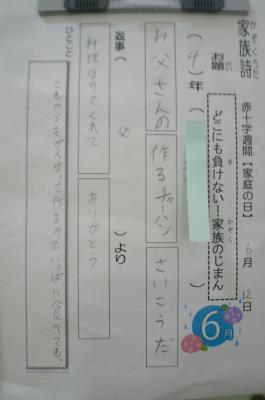 家族詩
かぞくうた
赤十字週間【家庭の日】 6月 12日
お題
だい
どこにも負けない!家族のじまん
ま
かぞく
6月
( 4 )年 ( )
お父さんの 作るチャーハン さいこうだ
返事( 父 )より
料理ほめてくれて ありがとう
ひとこと
これからもがんばって作るのでいっぱい食べてね。